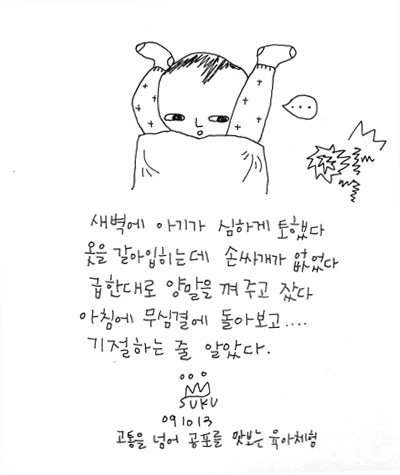 ...
새벽에 아기가 심하게 토했다
옷을 갈아입히는데 손싸개가 없었다
급한대로 양말을 껴 주고 잤다
아침에 무심결에 돌아보고....
기절하는 줄 알았다.
SUKU
091013
고통을 넘어 공포를 맛보는 육아체험